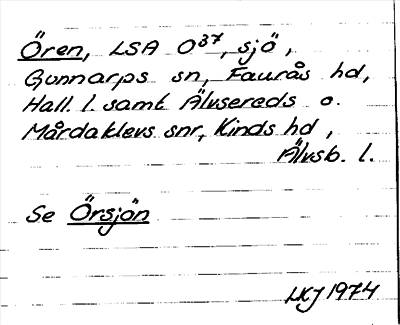 Ören, LSA O37, sjö,
Gunnarps sn, Faurås hd,
Hall. l. samt Älvsereds o.
Mårdaklevs snr, Kinds hd,
Älvsb. l.
Se Örsjön
LKJ 1974